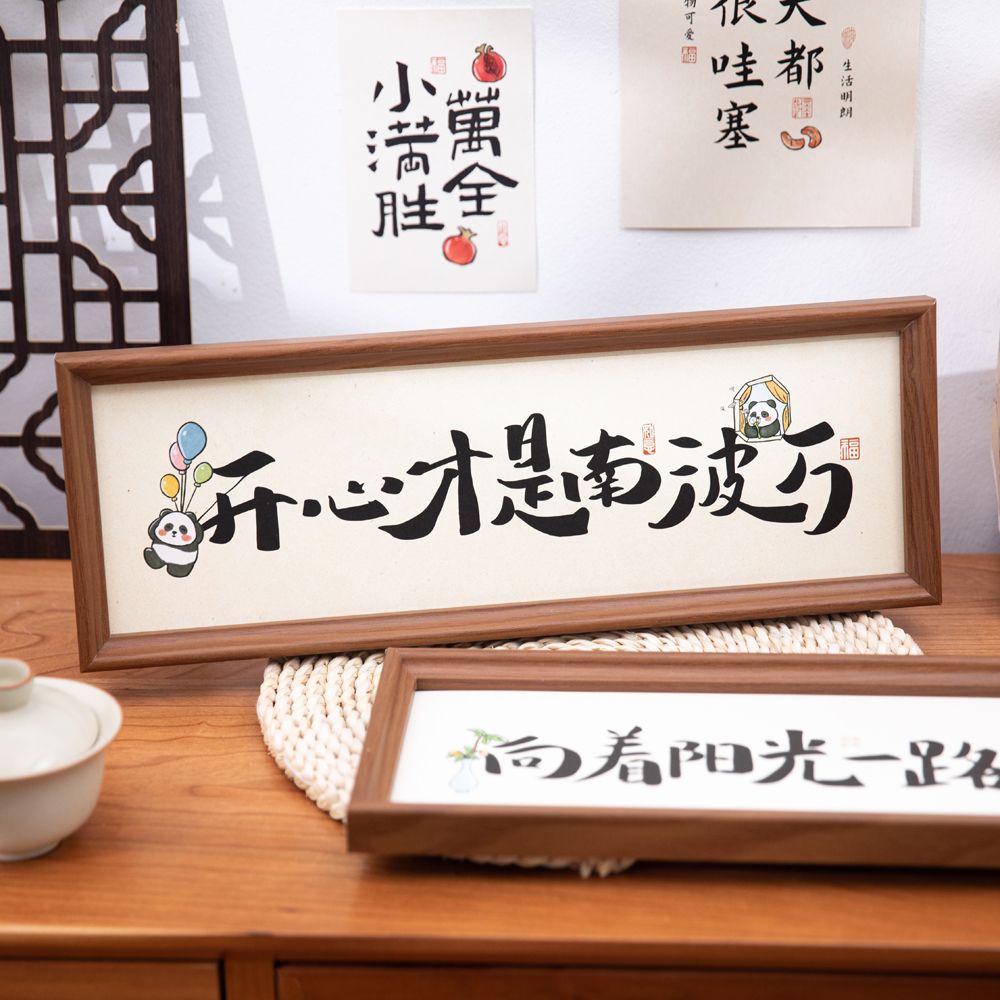 小满胜
萬全
福
生活明朗
都
很哇塞
物可爱
福
开心才是南波万
福
向着阳光一路